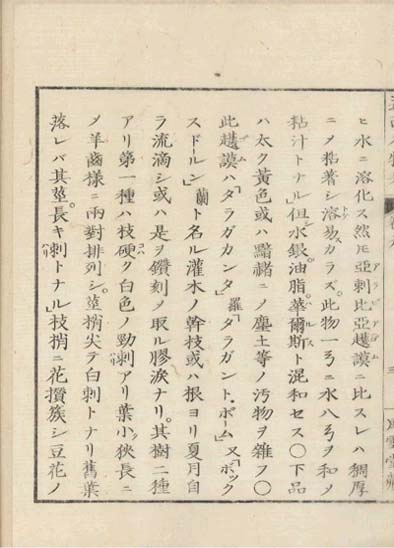 ヒ水ニ溶化ス然𪜈亞刺比亞護謨ニ比スレハ稠厚
ニノ黏著シ溶易カラズ。此物一㕥ニ水八㕥ヲ和ノ
粘汁トナル」但水銀。油脂。華爾斯ト混和セス〇下品
ハ太ク黃色或ハ黯赭ニノ塵土等ノ汚物ヲ雜フ〇
此護謨ハ「タラガカンタ」羅「タラガント、ボーム」又「ボック
スドールン」蘭ト名ル灌木ノ幹枝或ハ根ヨリ夏月自
ラ流滴シ或ハ是ヲ鑽刻ノ取ル膠淚ナリ。其樹二種
アリ第一種ハ枝硬ク白色ノ勁刺アリ葉小ク狹長ニ
ノ羊齒樣ニ兩對排列シ。莖梢尖テ白刺トナリ舊葉
落レバ其莖。長キ刺トナル」枝梢ニ花攢簇シ豆花ノ